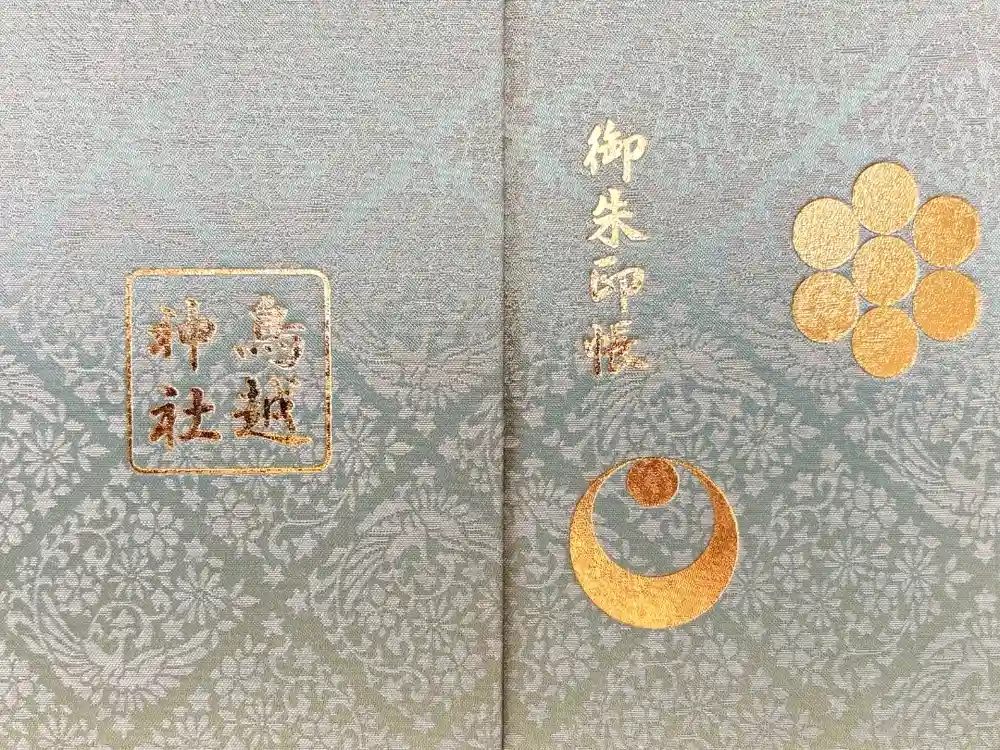 御朱印帳
鳥越
神社